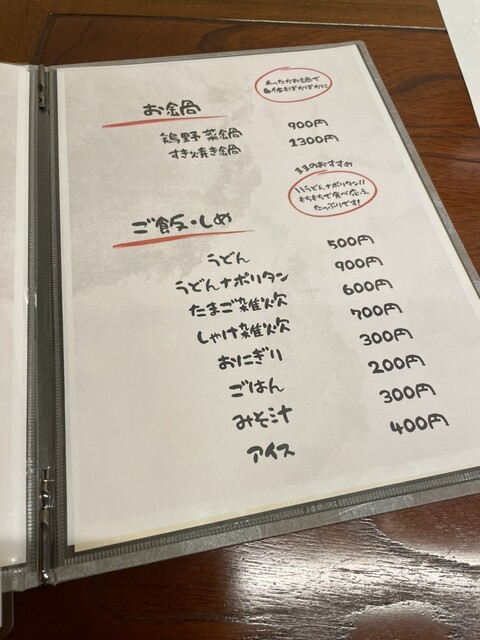 あったかお鍋で
身体もぽかぽかに
お鍋
鶏野菜鍋 900円
すき焼き鍋 1300円
ままのおすすめ
うどんナポリタン!!
もちもちで食べ応え
たっぷりです!
ご飯・しめ
うどん 500円
うどんナポリタン 900円
たまご雑炊 600円
しゃけ雑炊 700円
おにぎり 300円
ごはん 200円
みそ汁 300円
アイス 400円